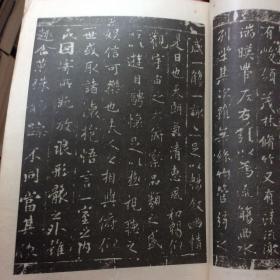 有峻領茂林脩竹又有清流激
湍暎帶左右引以為流觴曲水
列坐其次雖無絲竹管弦之
盛一觴一詠亦足以暢敘幽情
是日也天朗氣清惠風和暢仰
觀宇宙之大俯察品類之盛
所以遊目騁懷足以極視聽之
娛信可樂也夫人之相與俯仰
一世或取諸懷抱悟言一室之內
或因寄所託放浪形骸之外雖
趣舍萬殊靜躁不同當其欣